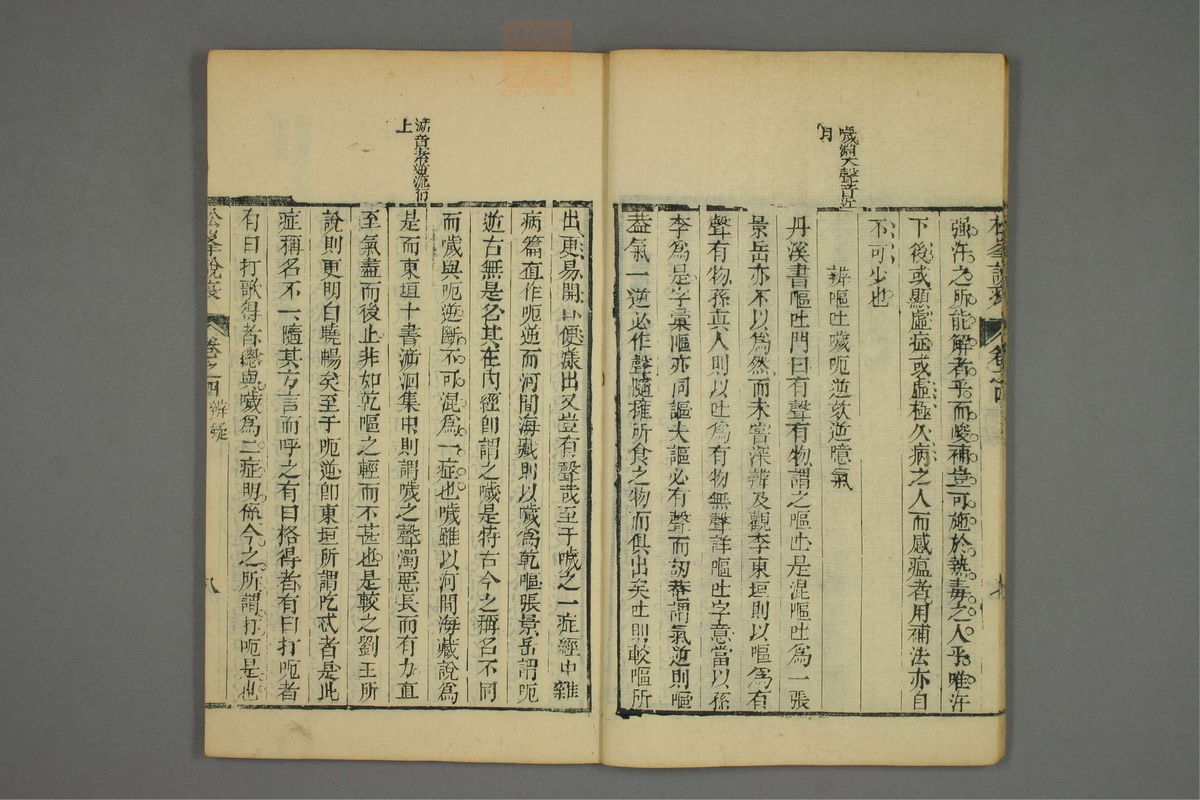 强汗之所能解者乎而峻補豈可施於熱毒之人乎唯汗
下後或顯虛症或虛極久病之人而感瘟者用補法亦自
不可少也
辨嘔吐噦呃逆欬逆噫氣
丹溪書嘔吐門曰有聲有物謂之嘔吐是混嘔吐爲一張
景岳亦不以爲然而未嘗深辨及觀李東垣則以嘔爲有
聲有物孫真人則以吐爲有物無聲詳嘔吐字意當以孫
李爲是字彙嘔亦同謳夫謳必有聲而訒菴謂氣逆則嘔
葢氣一逆必作聲隨擁所食之物而俱出矣吐則較嘔所
出更易開口便漾出又豈有聲哉至于噦之一症經中雜
病篇直作呃逆而河間海藏則以噦爲乾嘔張景岳謂呃
逆古無是名其在内經卽謂之噦是特古今之稱名不同
而噦與呃逆斷不可混爲一症也噦雖以河間海藏說爲
是而東垣十書溯洄集中則謂噦之聲濁惡長而有力直
至氣盡而後止非如乾嘔之輕而不甚也是較之劉王所
說則更明白曉暢矣至于呃逆卽東垣所謂吃忒者是此
症稱名不一隨其方言而呼之有曰格得者有曰打呃者
有曰打歌得者總與噦爲二症明係今之所謂打呃是也
松峯說疫
卷之四
辨疑
八